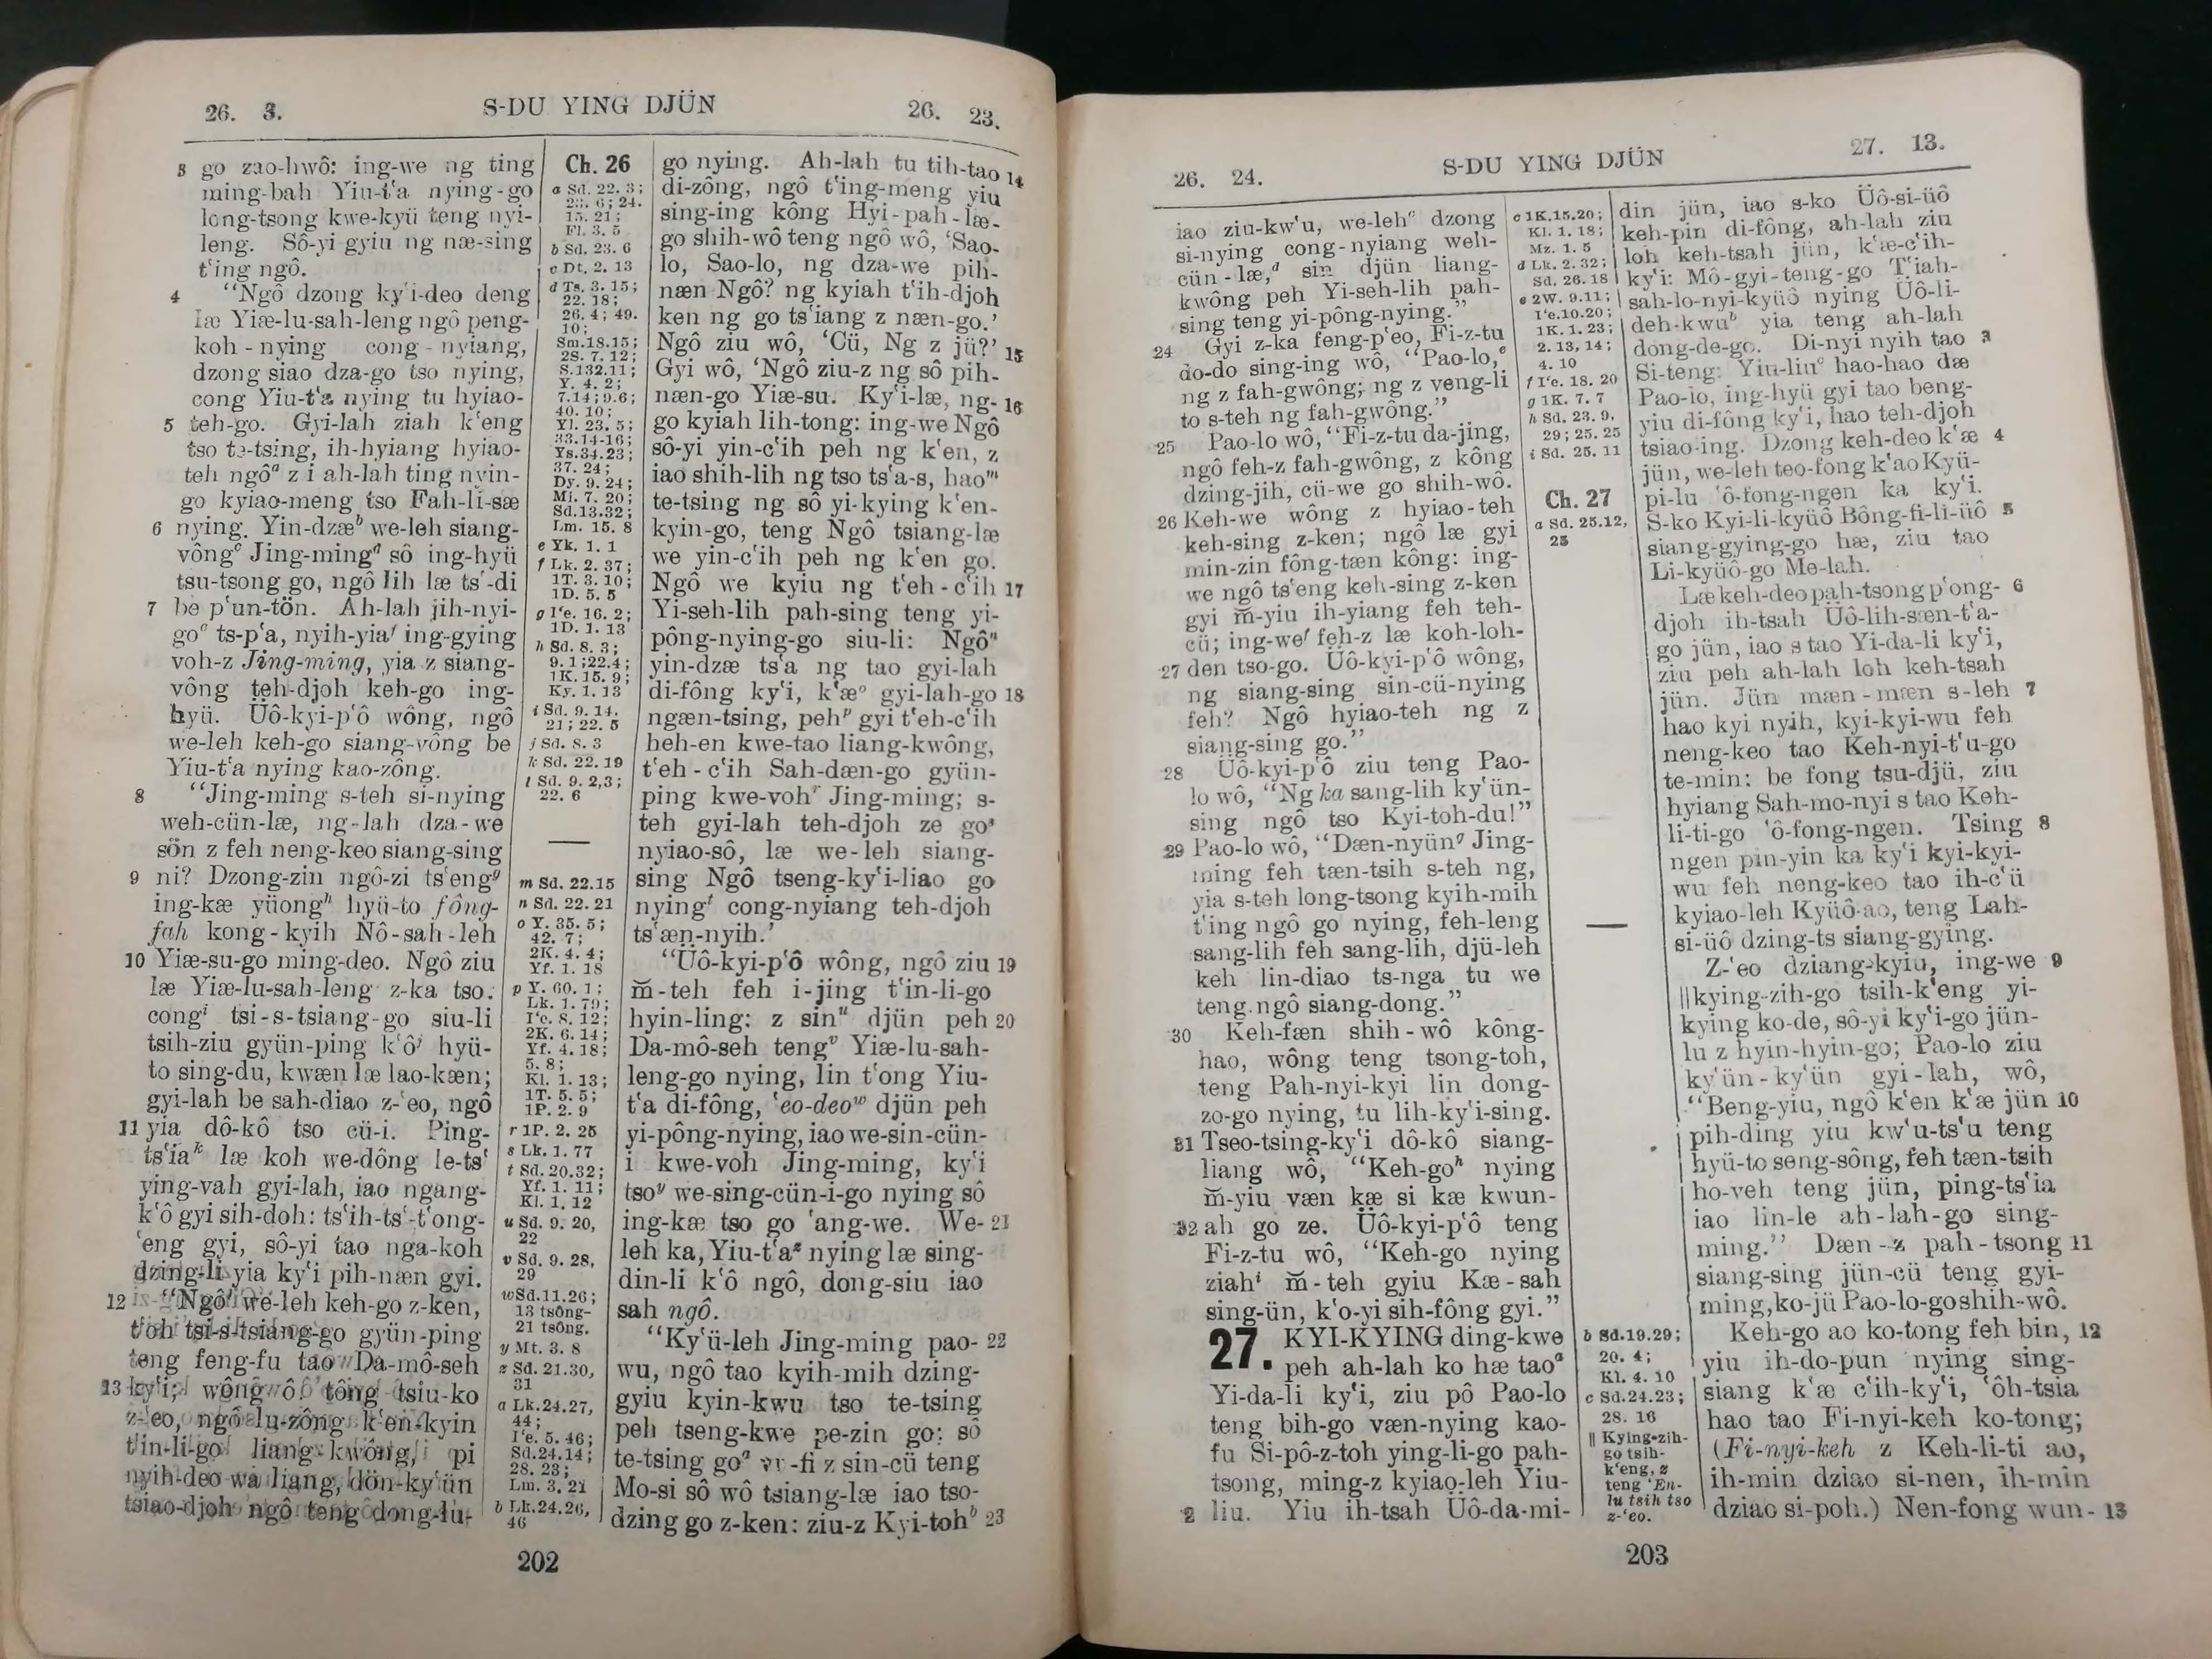 26. 3. S-DU YING DJÜN 26. 23.
3 go zao-hwô: ing-we ng ting
ming-bah Yiu-t‘a nying-go
long-tsong kwe-kyü teng nyi-
leng. Sô-yi gyiu ng næ-sing
t‘ing ngô.
4 “Ngô dzong ky‘i-deo deng
læ Yiæ-lu-sah-leng ngô peng-
koh-nying cong-nyiang,
dzong siao dza-go tso nying,
cong Yiu-t‘a nying tu hyiao-
5 teh-go. Gyi-lah ziah k‘eng
tso te-tsing, ih-hyiang hyiao-
teh ngôa z i ah-lah ting nyin-
go kyiao-meng tso Fah-li-sæ
6 nying. Yin-dzæb we-leh siang-
vôngc Jing-mingd sô ing-hyü
tsu-tsong go, ngô lih læ ts‘-di
7 be p‘un-tön. Ah-lah jih-nyi-
goe ts-p‘a, nyih-yiaf ing-gying
voh-z Jing-ming, yia z siang-
vông teh-djoh keh-go ing-
hyü. Üô-kyi-p‘ô wông, ngô
we-leh keh-go siang-vông be
Yiu-t‘a nying kao-zông.
8 “Jing-ming s-teh si-nying
weh-cün-læ, ng-lah dza-we
sön z feh neng-keo siang-sing
9 ni? Dzong-zin ngô-zi ts‘engg
ing-kæ yüongh hyü-to fông-
fah kong-kyih Nô-sah-leh
10 Yiæ-su-go ming-deo. Ngô ziu
læ Yiæ-lu-sah-leng z-ka tso:
congi tsi-s-tsiang-go siu-li
tsih-ziu gyün-ping k‘ôj hyü-
to sing-du, kwæn læ lao-kæn;
gyi-lah be sah-diao z-‘eo, ngô
11 yia dô-kô tso cü-i. Ping-
ts‘iak læ koh we-dông le-ts‘
ying-vah gyi-lah, iao ngang-
k‘ô gyi sih-doh: ts‘ih-ts‘-t‘ong-
‘eng gyi, sô-yi tao nga-koh
dzing-li yia ky‘i pih-næn gyi.
12 “Ngôl we-leh keh-go z-ken,
t‘oh tsi-s-tsiang-go gyün-ping
teng feng-fu tao Da-mô-seh
13 ky‘i; wông ô, tông tsiu-ko
z-‘eo, ngô lu-zông k‘en-kyin
t‘in-li-go liang-kwông, pi
nyih-deo wa liang, dön-ky‘ün
tsiao-djoh ngô teng dong-lu-
Ch. 26
a Sd. 22. 3;
23. 6; 24.
15. 21;
Fl. 3. 5
b Sd. 23. 6
c Dt. 2. 13
d Ts. 3. 15;
22. 18;
26. 4; 49.
10;
Sm.18.15;
2S. 7. 12;
S.132.11;
Y. 4. 2;
7.14; 9.6;
40. 10;
Yl. 23. 5;
33.14-16;
Ys.34.23;
37. 24;
Dy. 9. 24;
Mi. 7. 20;
Sd.13.32;
Lm. 15. 8
e Yk. 1. 1
f Lk. 2. 37;
1T. 3. 10;
1D. 5. 5
g I‘e. 16. 2;
1D. 1. 13
h Sd. 8. 3;
9. 1;22.4;
1K. 15. 9;
Ky. 1. 13
i Sd. 9. 14.
21; 22. 5
j Sd. 8. 3
k Sd. 22. 19
l Sd. 9. 2,3;
22. 6
m Sd. 22.15
n Sd. 22. 21
o Y. 35. 5;
42. 7;
2K. 4. 4;
Yf. 1. 18
p Y. 60. 1;
Lk. 1. 79;
I‘e. 8. 12;
2K. 6. 14;
Yf. 4. 18;
5. 8;
Kl. 1. 13;
1T. 5. 5;
1P. 2. 9
r 1P. 2. 25
s Lk. 1. 77
t Sd. 20.32;
Yf. 1. 11;
Kl. 1. 12
u Sd. 9. 20,
22
v Sd. 9. 28,
29
wSd.11.26;
13 tsông-
21 tsông.
y Mt. 3. 8
z Sd. 21.30,
31
a Lk.24.27,
44;
I‘e. 5. 46;
Sd.24.14;
28. 23;
Lm. 3. 21
b Lk.24.26,
46
go nying. Ah-lah tu tih-tao 14
di-zông, ngô t‘ing-meng yiu
sing-ing kông Hyi-pah-læ-
go shih-wô teng ngô wô, ‘Sao-
lo, Sao-lo, ng dza-we pih-
næn Ngô? ng kyiah t‘ih-djoh
ken ng go ts‘iang z næn-go.’
Ngô ziu wô, ‘Cü, Ng z jü?’ 15
Gyi wô, ‘Ngô ziu-z ng sô pih-
næn-go Yiæ-su. Ky‘i-læ, ng- 16
go kyiah lih-tong: ing-we Ngô
sô-yi yin-c‘ih peh ng k‘en, z
iao shih-lih ng tso ts‘a-s, haom
te-tsing ng sô yi-kying k‘en-
kyin-go, teng Ngô tsiang-læ
we yin-c‘ih peh ng k‘en go.
Ngô we kyiu ng t‘eh-c‘ih 17
Yi-seh-lih pah-sing teng yi-
pông-nying-go siu-li: Ngôn
yin-dzæ ts‘a ng tao gyi-lah
di-fông ky‘i, k‘æo gyi-lah-go 18
ngæn-tsing, pehp gyi t‘eh-c‘ih
heh-en kwe-tao liang-kwông,
t‘eh-c‘ih Sah-dæn-go gyün-
ping kwe-vohr Jing-ming; s-
teh gyi-lah teh-djoh ze gos
nyiao-sô, læ we-leh siang-
sing Ngô tseng-ky‘i-liao go
nyingt cong-nyiang teh-djoh
ts‘æn-nyih.’
“Üô-kyi-p‘ô wông, ngô ziu 19
m̆-teh feh i-jing t‘in-li-go
hyin-ling: z sinu djün peh 20
Da-mô-seh tengv Yiæ-lu-sah-
leng-go nying, lin t‘ong Yiu-
t‘a di-fông, ‘eo-deow djün peh
yi-pông-nying, iao we-sin-cün-
i kwe-voh Jing-ming, ky‘i
tsoy we-sing-cün-i-go nying sô
ing-kæ tso go ‘ang-we. We- 21
leh ka, Yiu-t‘az nying læ sing-
din-li k‘ô ngô, dong-siu iao
sah ngô.
“Ky‘ü-leh Jing-ming pao- 22
wu, ngô tao kyih-mih dzing-
gyiu kyin-kwu tso te-tsing
peh tseng-kwe pe-zin go; sô
te-tsing goa -fi z sin-cü teng
Mo-si sô wô tsiang-læ iao tso-
dzing go z-ken: ziu-z Kyi-tohb 23
202
26. 24. S-DU YING DJÜN 27. 13.
iao ziu-kw‘u, we-lehc dzong
si-nying cong-nyiang weh-
cün-læ,d sin djün liang-
kwông peh Yi-seh-lih pah-
sing teng yi-pông-nying.”
24 Gyi z-ka feng-p‘eo, Fi-z-tu
do-do sing-ing wô, “Pao-lo,e
ng z fah-gwông; ng z veng-li
to s-teh ng fah-gwông.”
25 Pao-lo wô, “Fi-z-tu da-jing,
ngô feh-z fah-gwông, z kông
dzing-jih, cü-we go shih-wô.
26 Keh-we wông z hyiao-teh
keh-sing z-ken; ngô læ gyi
min-zin fông-tæn kông: ing-
we ngô ts‘eng keh-sing z-ken
gyi m̆-yiu ih-yiang feh teh-
cü; ing-wef feh-z læ koh-loh-
27 den tso-go. Üô-kyi-p‘ô wông,
ng siang-sing sin-cü-nying
feh? Ngô hyiao-teh ng z
siang-sing go.”
28 Üô-kyi-p‘ô ziu teng Pao-
lo wô, “Ng ka sang-lih ky‘ün-
sing ngô tso Kyi-toh-du!”
29 Pao-lo wô, “Dæn-nyüng Jing-
ming feh tæn-tsih s-teh ng,
yia s-teh long-tsong kyih-mih
t‘ing ngô go nying, feh-leng
sang-lih feh sang-lih, djü-leh
keh lin-diao ts-nga tu we
teng ngô siang-dong.”
30 Keh-fæn shih-wô kông-
hao, wông teng tsong-toh,
teng Pah-nyi-kyi lin dong-
zo-go nying, tu lih-ky‘i-sing.
31 Tseo-tsing-ky‘i dô-kô siang-
liang wô, “Keh-goh nying
m̆-yiu væn kæ si kæ kwun-
32 ah go ze. Üô-kyi-p‘ô teng
Fi-z-tu wô, “Keh-go nying
ziahi m̆-teh gyiu Kæ-sah
sing-ün, k‘o-yi sih-fông gyi.”
27. KYI-KYING ding-kwe
peh ah-lah ko hæ taoa
Yi-da-li ky‘i, ziu pô Pao-lo
teng bih-go væn-nying kao-
fu Si-pô-z-toh ying-li-go pah-
tsong, ming-z kyiao-leh Yiu-
2 liu. Yiu ih-tsah Üô-da-mi-
c 1K.15.20;
Kl. 1. 18;
Mz. 1. 5
d Lk. 2. 32;
Sd. 26. 18
e 2W. 9.11;
I‘e.10.20;
1K. 1. 23;
2. 13, 14;
4. 10
f I‘e. 18. 20
g 1K. 7. 7
h Sd. 23. 9.
29; 25. 25
i Sd. 25. 11
Ch. 27
a Sd. 25.12,
25
b Sd.19.29;
20. 4;
Kl. 4. 10
c Sd.24.23;
28. 16
‖ Kying-zih-
go tsih-
k‘eng, z
teng ‘En-
lu tsih tso
z-‘eo.
din jün, iao s-ko Üô-si-üô
keh-pin di-fông, ah-lah ziu
loh keh-tsah jün, k‘æ-c‘ih-
ky‘i: Mô-gyi-teng-go T‘iah-
sah-lo-nyi-kyüô nying Üô-li-
deh-kwub yia teng ah-lah
dong-de-go. Di-nyi nyih tao 3
Si-teng: Yiu-liuc hao-hao dæ
Pao-lo, ing-hyü gyi tao beng-
yiu di-fông ky‘i, hao teh-djoh
tsiao-ing. Dzong keh-deo k‘æ 4
jün, we-leh teo-fong k‘ao Kyü-
pi-lu ‘ô-fong-ngen ka ky‘i.
S-ko Kyi-li-kyüô Bông-fi-li-üô 5
siang-gying-go hæ, ziu tao
Li-kyüô-go Me-lah.
Læ keh-deo pah-tsong p‘ong- 6
djoh ih-tsah Üô-lih-sæn-t‘a-
go jün, iao s tao Yi-da-li ky‘i,
ziu peh ah-lah loh keh-tsah
jün. Jün mæn-mæn s-leh 7
hao kyi nyih, kyi-kyi-wu feh
neng-keo tao Keh-nyi-t‘u-go
te-min: be fong tsu-djü, ziu
hyiang Sah-mo-nyi s tao Keh-
li-ti-go ‘ô-fong-ngen. Tsing 8
ngen pin-yin ka ky‘i kyi-kyi-
wu feh neng-keo tao ih-c‘ü
kyiao-leh Kyüô-ao, teng Lah-
si-üô dzing-ts siang-gying.
Z-‘eo dziang-kyiu, ing-we 9
‖kying-zih-go tsih-k‘eng yi-
kying ko-de, sô-yi ky‘i-go jün-
lu z hyin-hyin-go; Pao-lo ziu
ky‘ün-ky‘ün gyi-lah, wô,
“Beng-yiu, ngô k‘en k‘æ jün 10
pih-ding yiu kw‘u-ts‘u teng
hyü-to seng-sông, feh tæn-tsih
ho-veh teng jün, ping-ts‘ia
iao lin-le ah-lah-go sing-
ming.” Dæn-z pah-tsong 11
siang-sing jün-cü teng gyi-
ming,ko-jü Pao-lo-go shih-wô.
Keh-go ao ko-tong feh bin, 12
yiu ih-do-pun nying sing-
siang k‘æ c‘ih-ky‘i, ‘ôh-tsia
hao tao Fi-nyi-keh ko-tong;
(Fi-nyi-keh z Keh-li-ti ao,
ih-min dziao si-nen, ih-min
dziao si-poh.) Nen-fong wun- 13
203